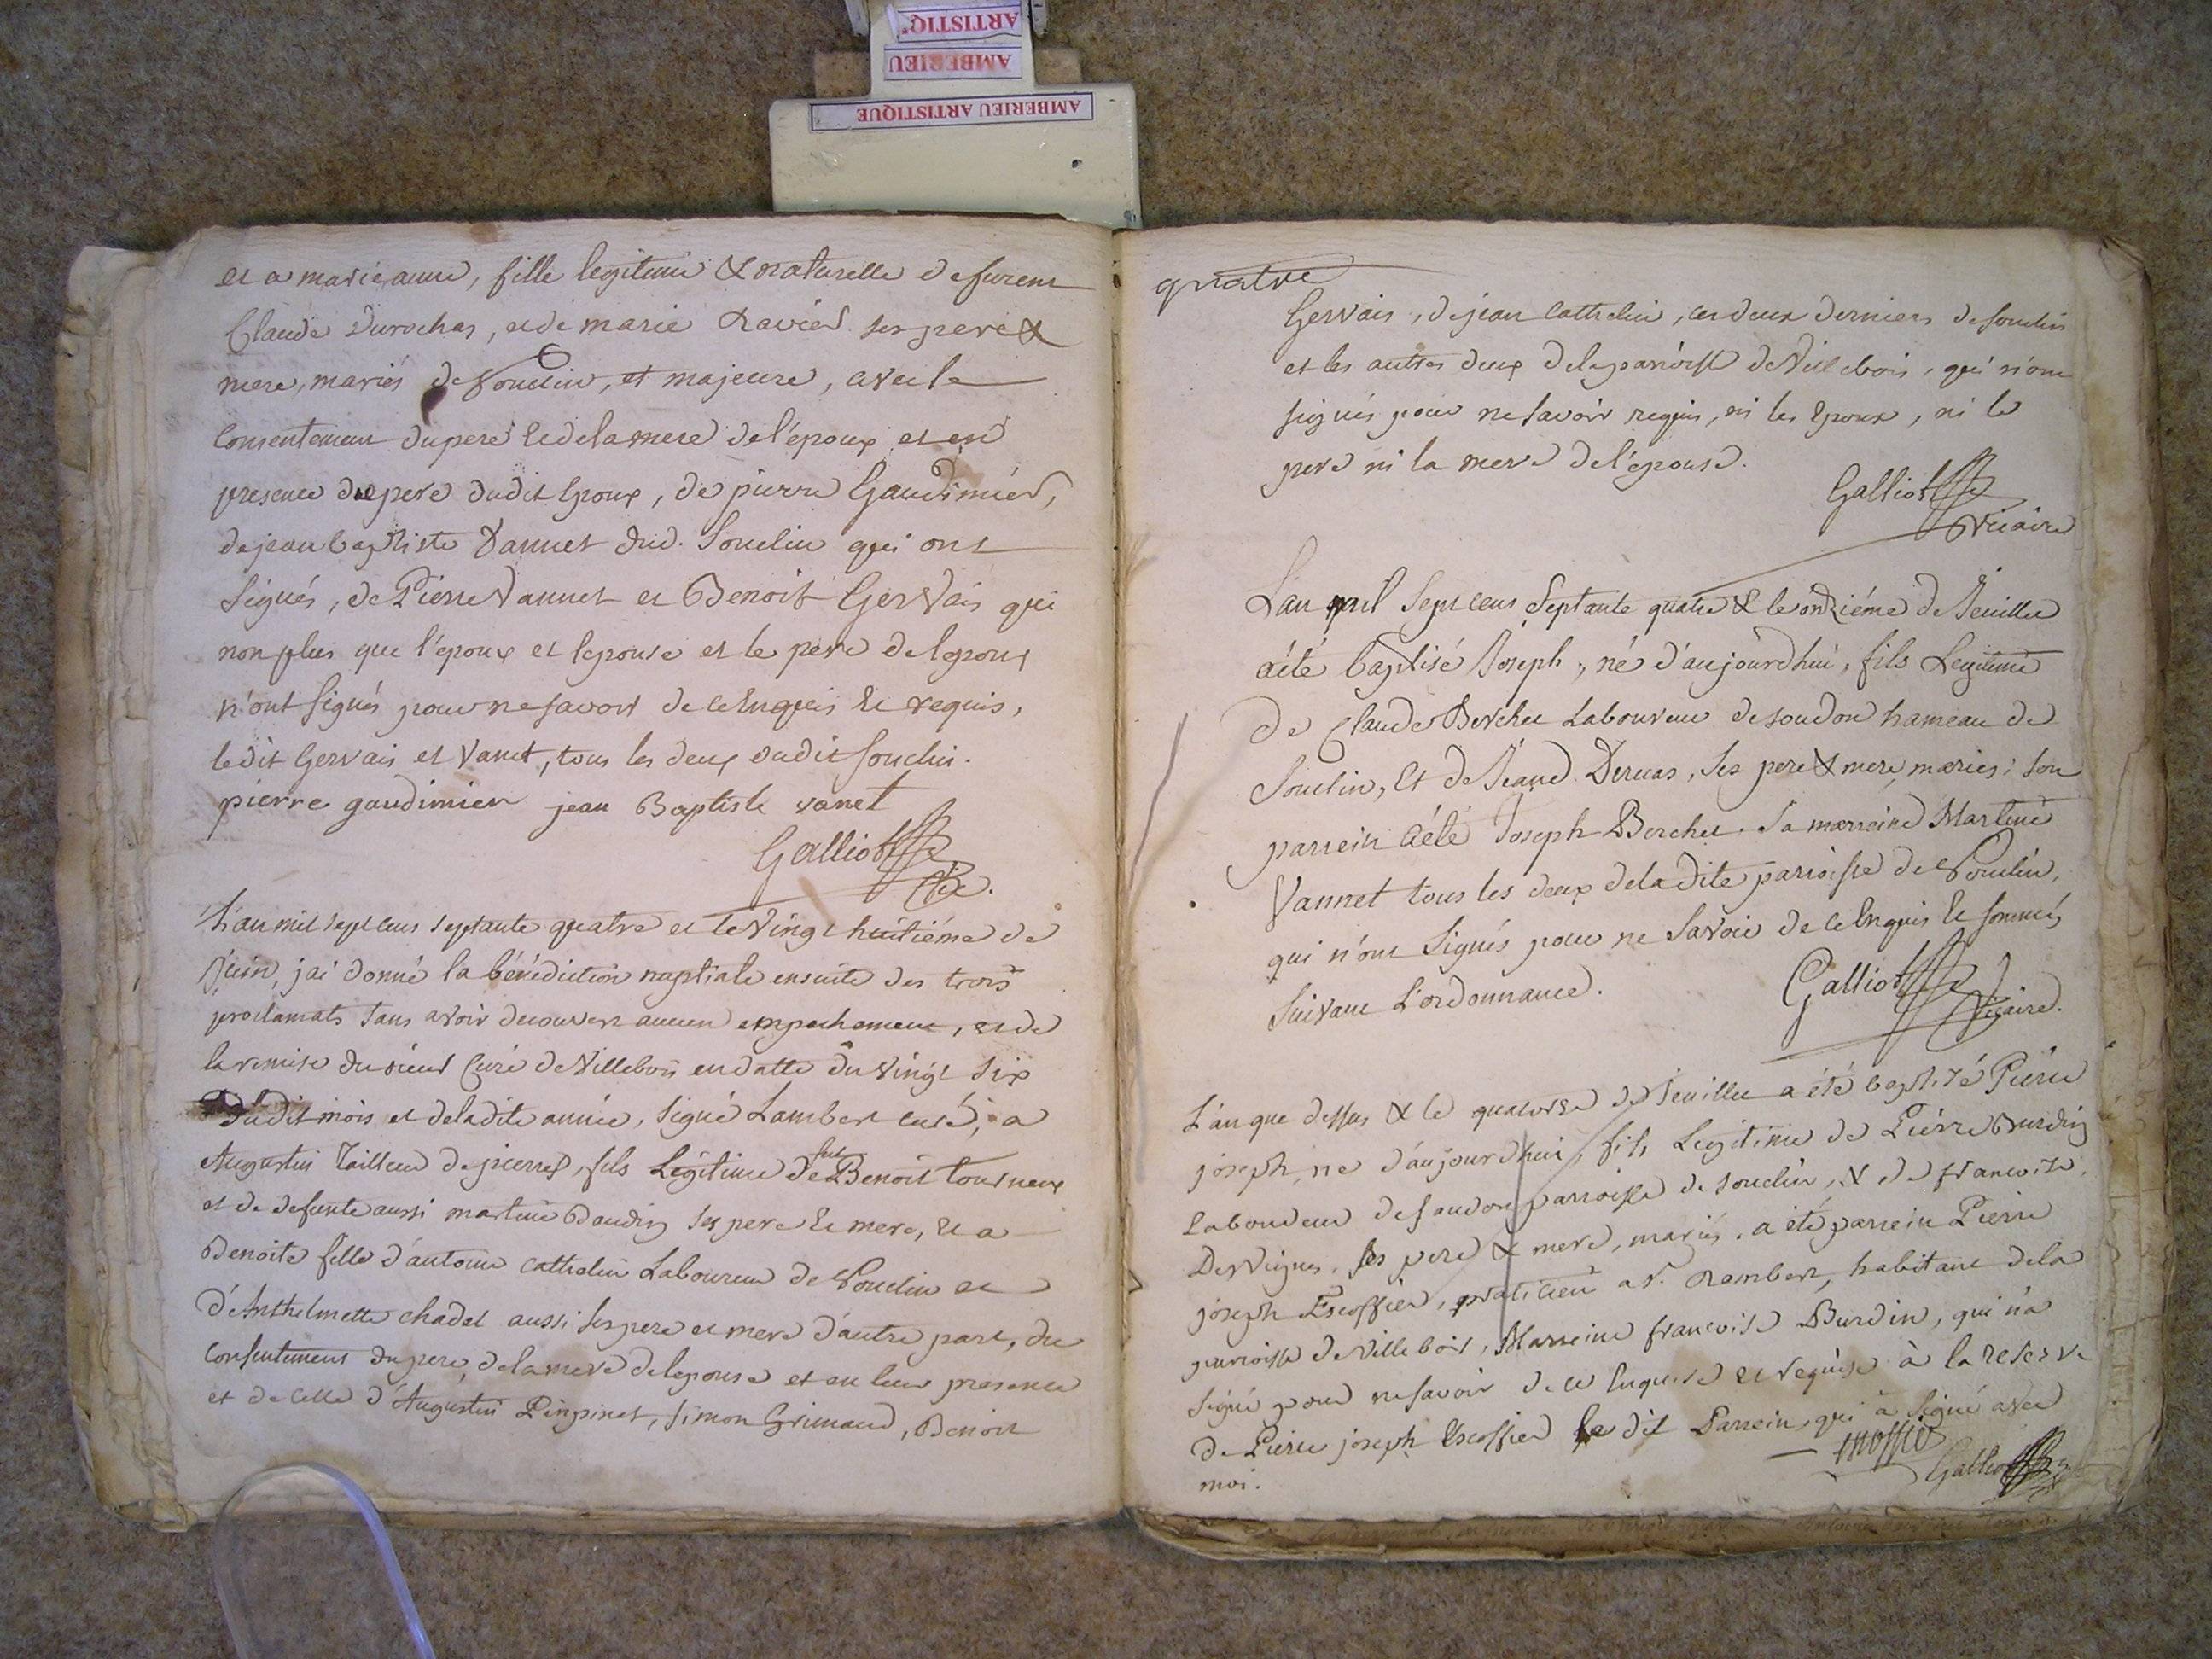 ARTISTIQ'
AMBERIEU
AMBERIEU ARTISTIQUE
et a marieanne, fille legitime & naturelle de furent
Claude Durochas, et de marie Ravier ses pere &
mere, mariés de Souclin, et majeure, avec le
consentement du pere et de la mere de l'époux et en
presence du pere dudit Epoux, de pierre Gaudimier,
de jean baptiste Vannet dud. Souclin qui ont
signés, de Pierre Vannet et Benoit Gervais qui
non plus que l'époux et lepouse et le pere de lepoux
n'ont signés pour ne savoir de ce Enquis et requis,
ledit Gervais et Vanet, tous les deux dudit souclin.
pierre gaudimier jean Baptiste vanet
Galliot
Vic.
L'an mil sept cens septante quatre et le vingt huitiéme de
Juin, jai donné la bénédiction nuptiale ensuite des trois
proclamats sans avoir decouvert aucun empechement, et de
la remise du sieur Curé de Villebois en datte du vingt six
dudit mois et deladite année, signé Lambert curé, a
Augustin Tailleur de pierres, fils Légitime de feu Benoit tourneux
et de defunte aussi martine Baudin ses pere et mere, et a
Benoite fille d'antoine cathelin Laboureur de Souclin et
d'Anthelmette chadel aussi ses pere et mere d'autre part, du
consentement du pere, de la mere de lepouse et en leur presence
et de celle d'Augustin Pinpinet, simon Grimaud, Benoit
quatre
Gervais, de jean Cathelin, ces deux derniers de souclin
et les autres deux de la parroisse de Villebois, qui n'ont
signés pour ne savoir requis, ni les Epoux, ni le
pere ni la mere de l'epouse.
Galliot
Vicaire
L'an mil sept cens septante quatre & le onziéme de Jeuillet
a été baptisé Joseph, né d'aujourdhui, fils Legitime
de Claude Berchet Laboureur de soudon hameau de
Souclin, et de Jeane Deruas, ses pere & mere, mariés; son
parrein a été Joseph Berchet. sa marreine Martine
Vannet tous les deux de la dite parroisse de Souclin,
qui n'ont signés pour ne savoir de ce Enquis et sommés
suivant L'ordonnance.
Galliot
Vicaire.
L'an que dessus & le quatorse de Jeuillet a été baptisé Pierre
joseph, né d'aujourdhui, fils Legitime de Pierre Burdin
Laboureur de soudon parroisse de souclin, & de francoise
Desvignes, ses pere & mere, mariés. a été parrein Pierre
joseph Escoffier, praticien a St. Rambert, habitant de la
parroisse de Villebois, Marreine francoise Burdin, qui n'a
signé pour ne savoir de ce Enquise et requise à la reserve
de Pierre joseph Escoffier le dit Parrein, qui à signé avec
moi.
escoffier
Galliot